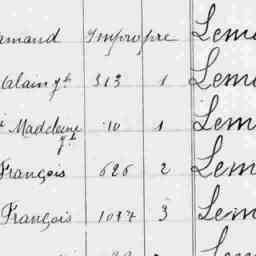 Impropre Lem
Alain 313 1 Lem
Madeleine 10 1 Lem
François 626 2 Lem
François 1047 3 Lem